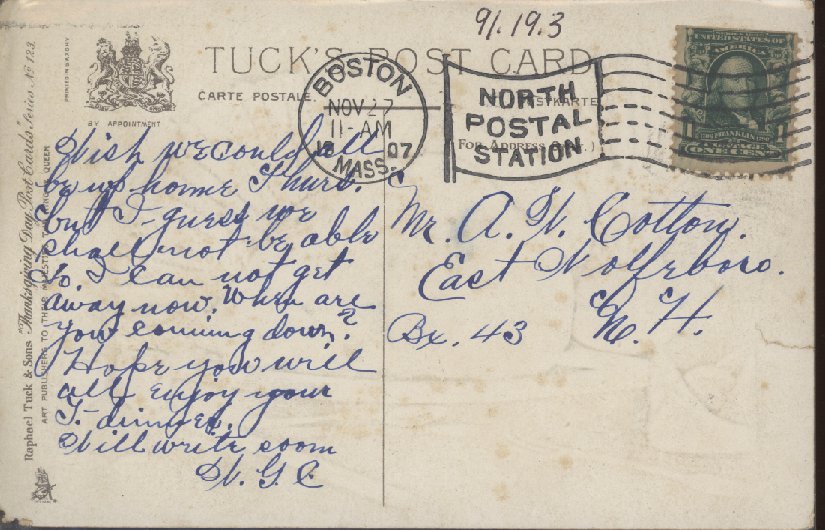 91.19.3
TUCK'S POST CARD
CARTE POSTALE.
POSTKARTE
BY APPOINTMENT
BOSTON
NOV 27
11-AM
07
MASS.
NORTH
POSTAL
STATION
Wish we could all
be up home Thurs.
but I guess we
shall not be able
to. I can not get
away now. When are
you coming down?
Hope you will
all enjoy your
T- dinner.
Will write soon
W. G. C.
Mr. A. W. Cotton.
East Wolfeboro.
Bx. 43 N. H.
Raphael Tuck & Sons "Thanksgiving Day" Post Cards Series No 123.
ART PUBLISHERS TO THEIR MAJESTIES THE KING & QUEEN